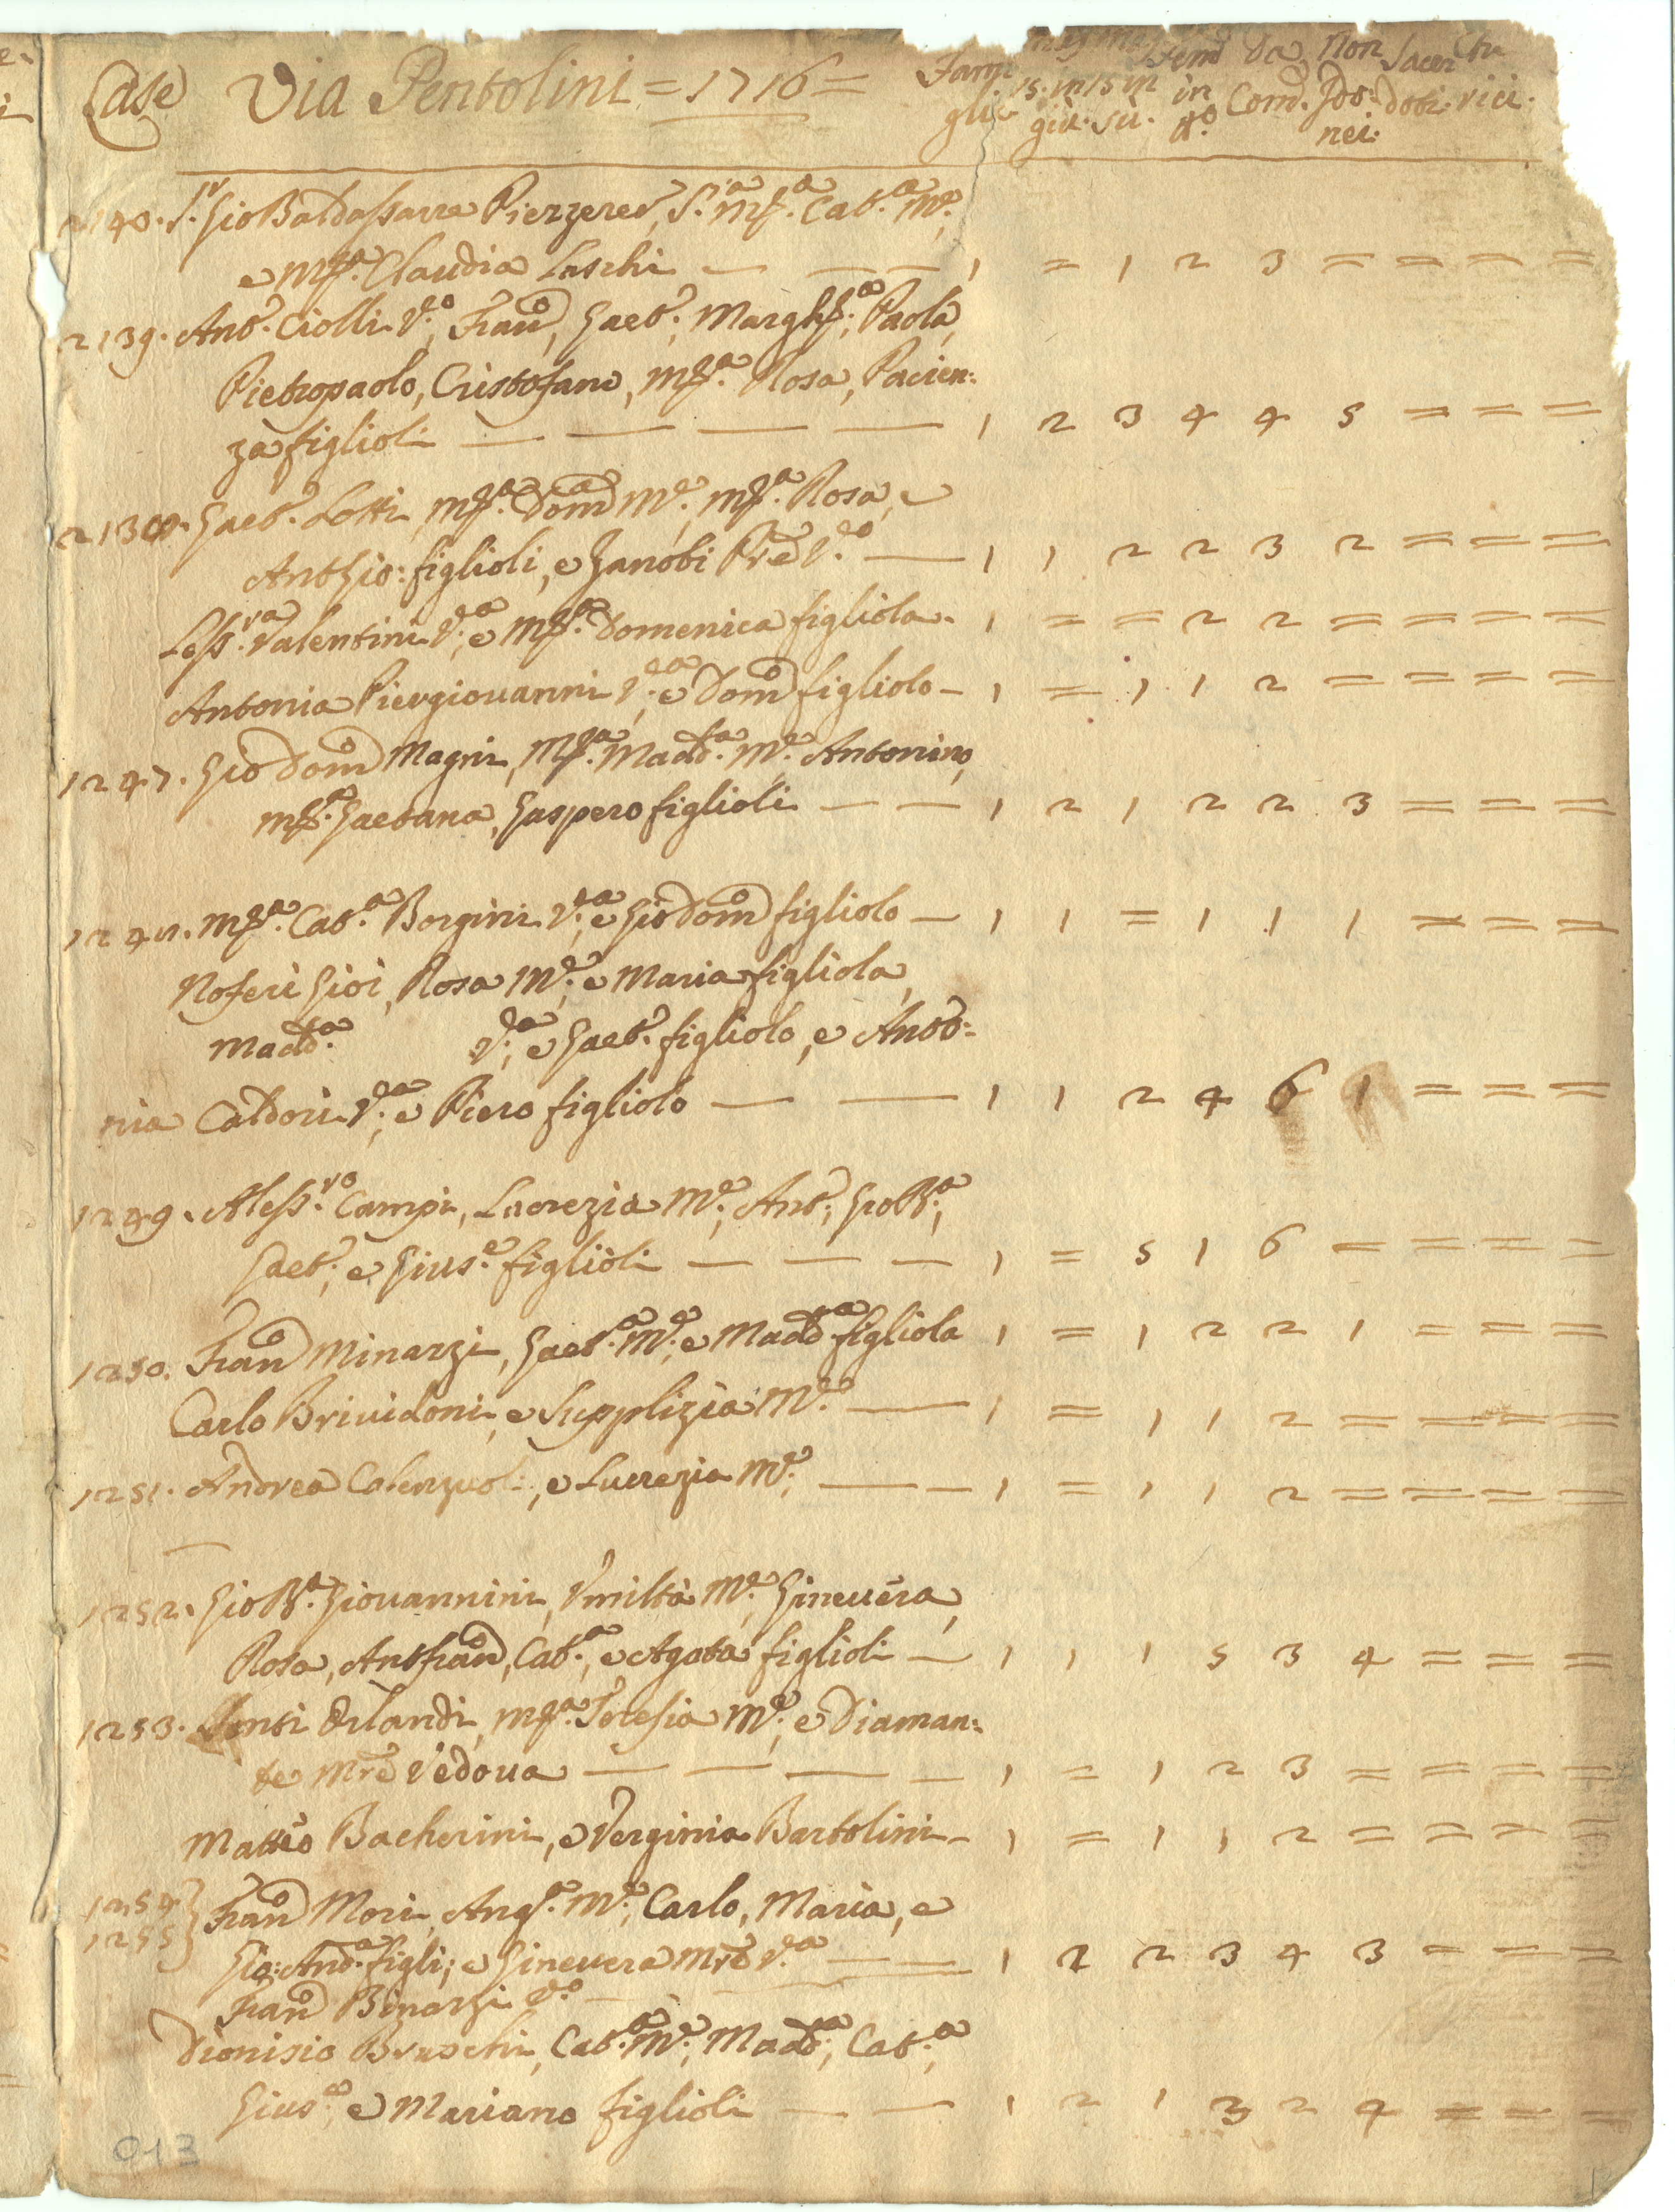 Case Via Pentolini = 1716 = Fami glie 15. in giù. 15 in sù. Fem in n.o Da Com. Non Ido: nei. Sacer doti. Che rici.
2140. S.r Gio Baldassarre Pierzered, S.a M.a Cat.a M.e,
e M.a Claudia Laschi — — — 1 = 1 2 3 = = = =
2139. Ant.o Ciolli V.o, Fran.o, Gaet.o, Margh.a, Paola,
Pietropaolo, Cristofano, M.a Rosa, Pacien:
za figlioli — — — — 1 2 3 4 4 5 = = =
2138. Gaet.o Lotti, M.a Dom.a M.e, M.a Rosa, e
Ant Gio: figlioli, e Zanobi Pre V.o — 1 1 2 2 3 2 = = =
Less.ra Valentini V.a, e M.a Domenica figliola. 1 = = 2 2 = = = =
Antonia Piergiovanni V.a, e Dom.o figliolo — 1 = 1 1 2 = = = =
1247. Gio Dom.o Magni, M.a Madd.a M.e, Antonino,
M.a Gaetana, Gaspero figlioli — — 1 2 1 2 2 3 = = =
M.a Cat.a Borgini V.a, e Gio Dom.o figliolo — 1 1 = 1 1 1 = = =
Noferi Gioi, Rosa M.e, e Maria figliola,
Madd.a V.a, e Gaet.o figliolo, e Anto:
nia Caldori V.a, e Piero figliolo — — 1 1 2 4 6 1 = = =
1249. Aless.ro Campi, Lucrezia M.e, Ant.o, Gio B.a,
Gaet.o, e Gius.e figlioli — — — 1 = 5 1 6 = = = =
1250. Fran.o Minarzi, Gaet.a M.e, e Madd.a figliola 1 = 1 2 2 1 = = =
Carlo Brividoni, e Supplizia M.e — 1 = 1 1 2 = = = =
1251. Andrea Calenzuoli, e Lucrezia M.e, — — 1 = 1 1 2 = = = =
1252. Gio B.a Giovannini, Umiltà M.e, Ginevera,
Rosa, Ant fran.o, Cat.a, e Agata figlioli — 1 1 1 5 3 4 = = =
1253. Santi Orlandi, M.a Teresia M.e, e Diaman:
te Mre Vedova — — — — 1 = 1 2 3 = = = =
Matteo Bacherini, e Verginia Bartolini — 1 = 1 1 2 = = = =
1254
1255 } Fran.o Mori, Ang.a M.e, Carlo, Maria, e
Gio: And.a figli; e Ginevera Mre V.a — — 1 2 2 3 4 3 = = =
Fran.o Binarzi V.o —
Dionisio Bruschi, Cat.a M.e, Madd.a, Cat.a,
Gius.e, e Mariano figlioli — — 1 2 1 3 2 4 = = =
013